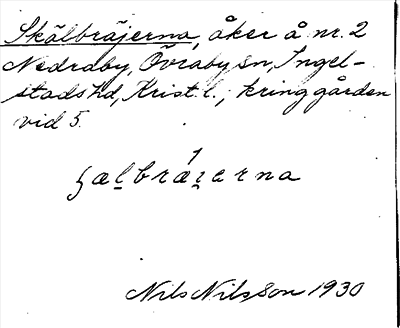 Skälbräjerna, åker å nr. 2
Nedraby, Övraby sn, Ingel-
stads hd, Krist. l.; kring gården
vid 5.
Nils Nilsson 1930